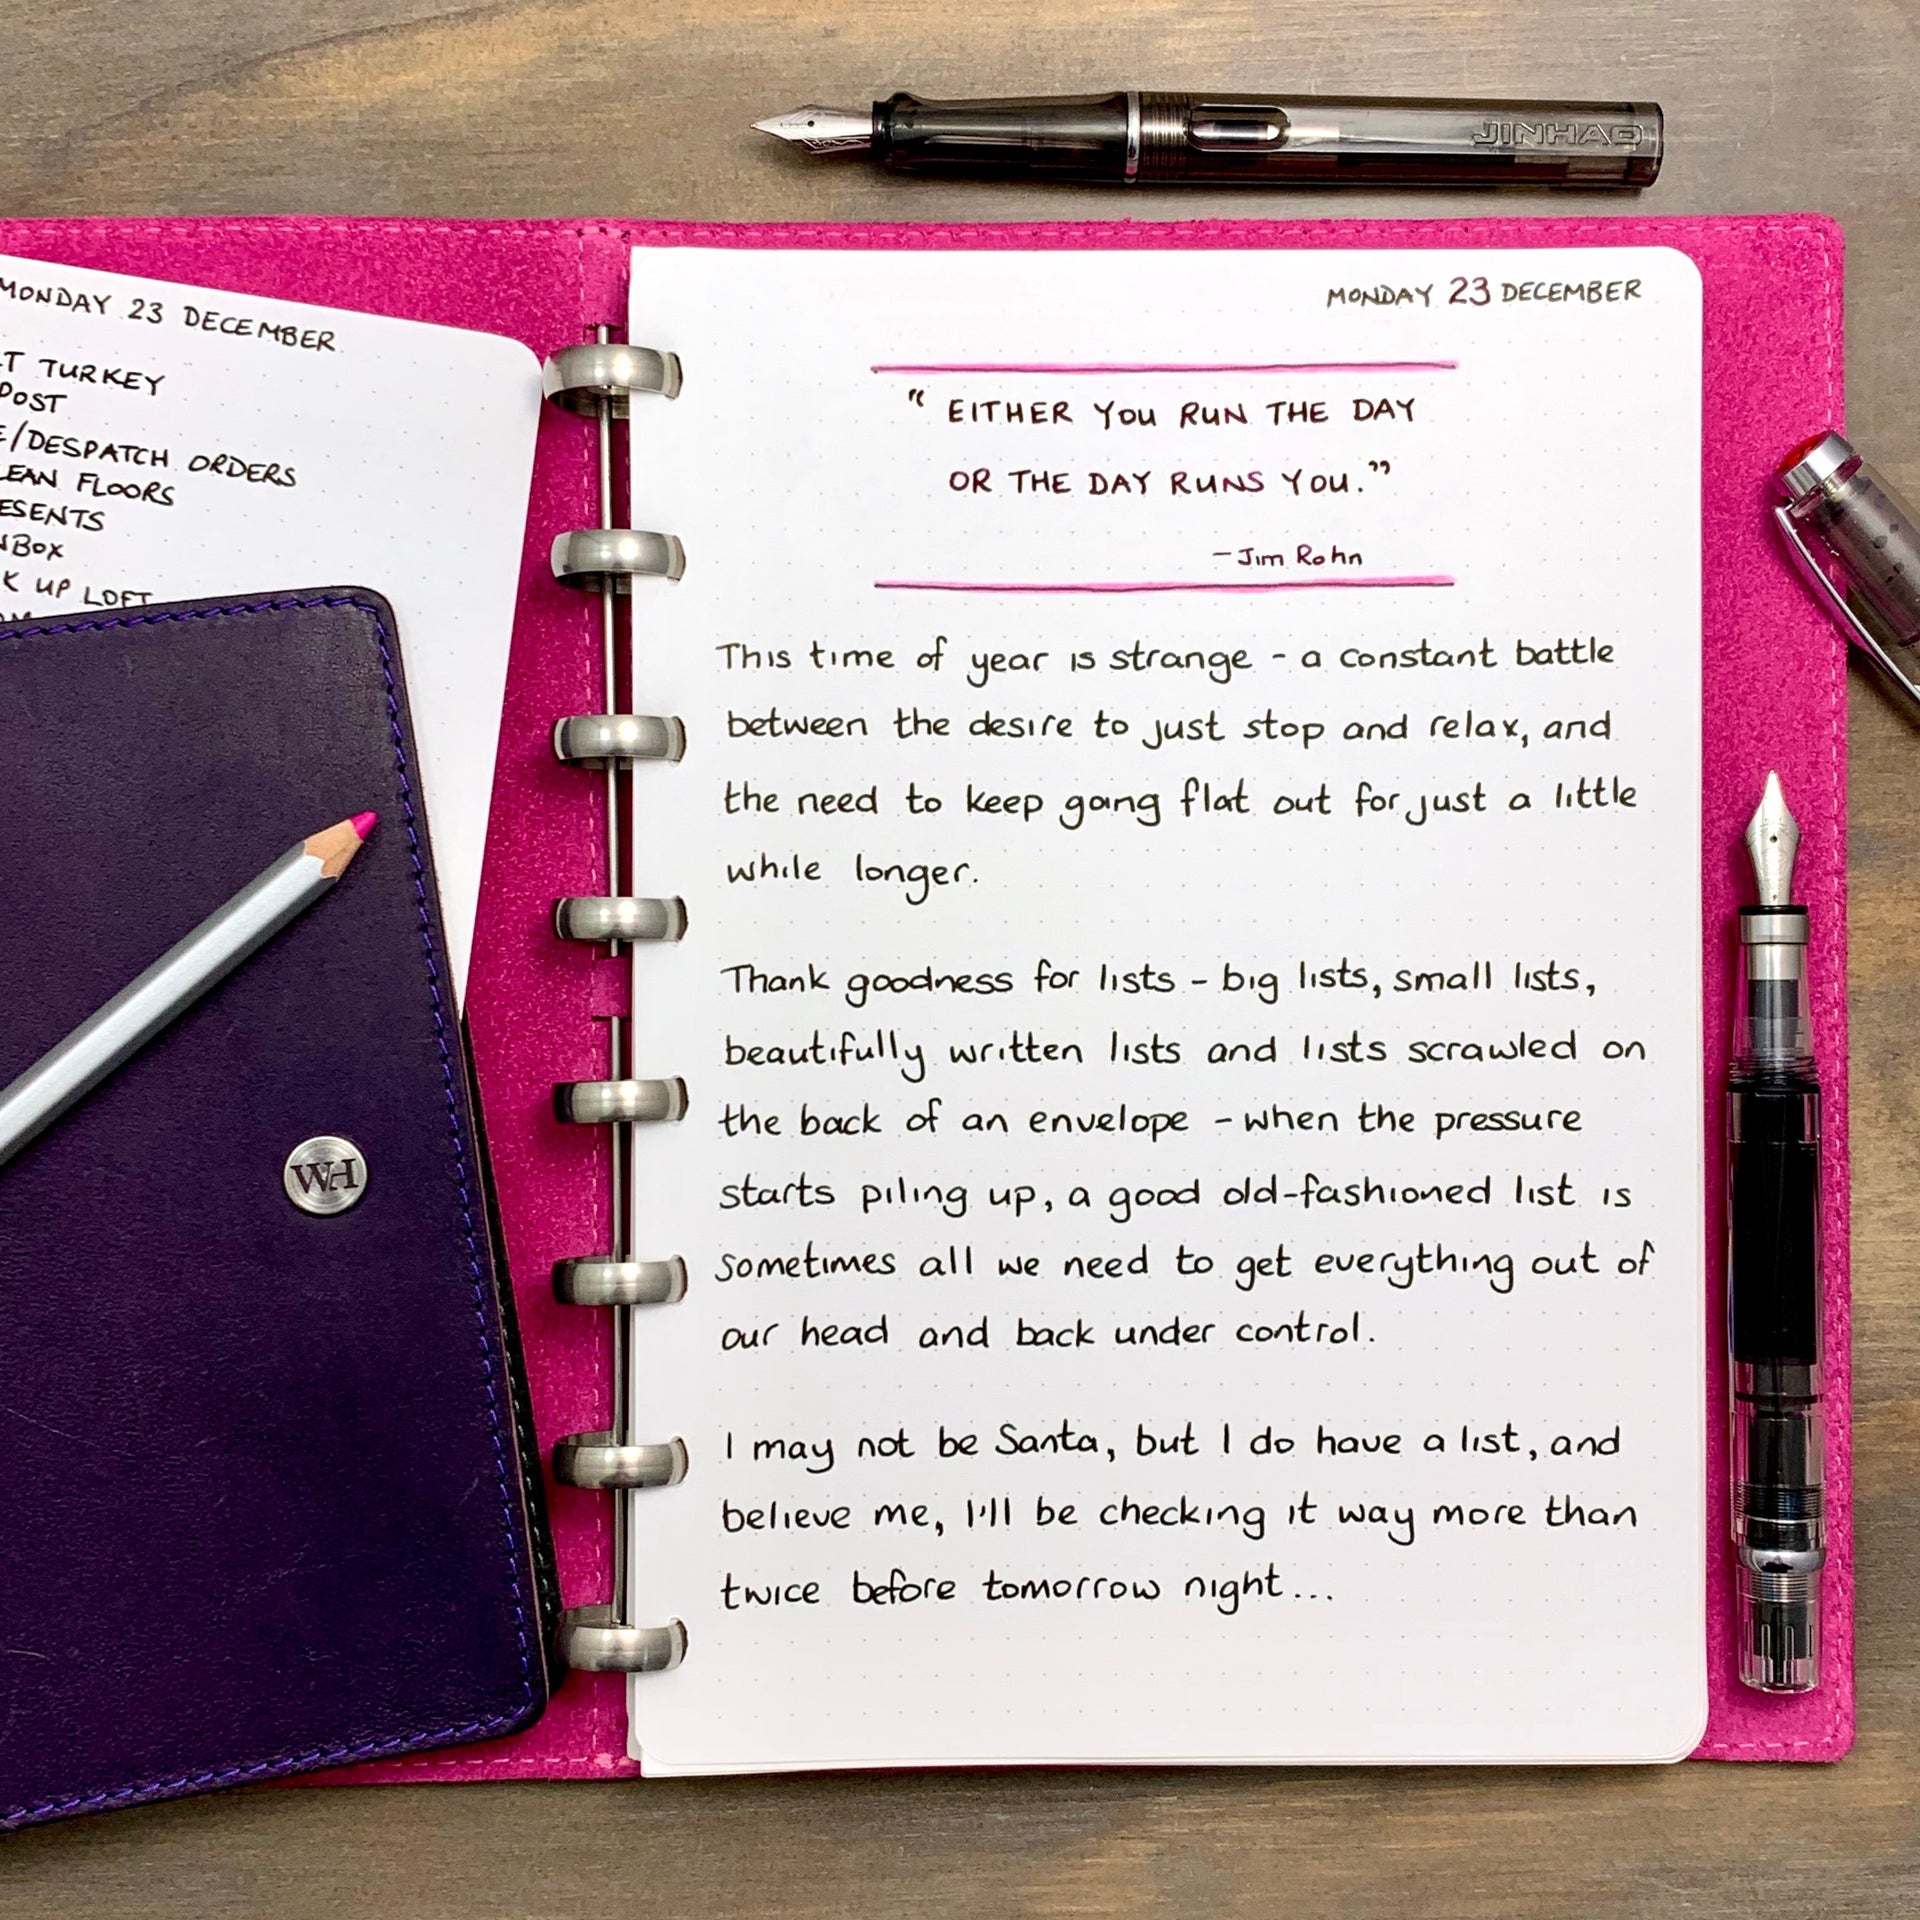 JINHAO
MONDAY 23 DECEMBER
TURKEY
POST
/DESPATCH ORDERS
CLEAN FLOORS
PRESENTS
INBOX
UP LOFT
MONDAY 23 DECEMBER
"EITHER YOU RUN THE DAY
OR THE DAY RUNS YOU."
- Jim Rohn
This time of year is strange - a constant battle
between the desire to just stop and relax, and
the need to keep going flat out for just a little
while longer.
Thank goodness for lists - big lists, small lists,
beautifully written lists and lists scrawled on
the back of an envelope - when the pressure
starts piling up, a good old-fashioned list is
sometimes all we need to get everything out of
our head and back under control.
I may not be Santa, but I do have a list, and
believe me, I'll be checking it way more than
twice before tomorrow night...